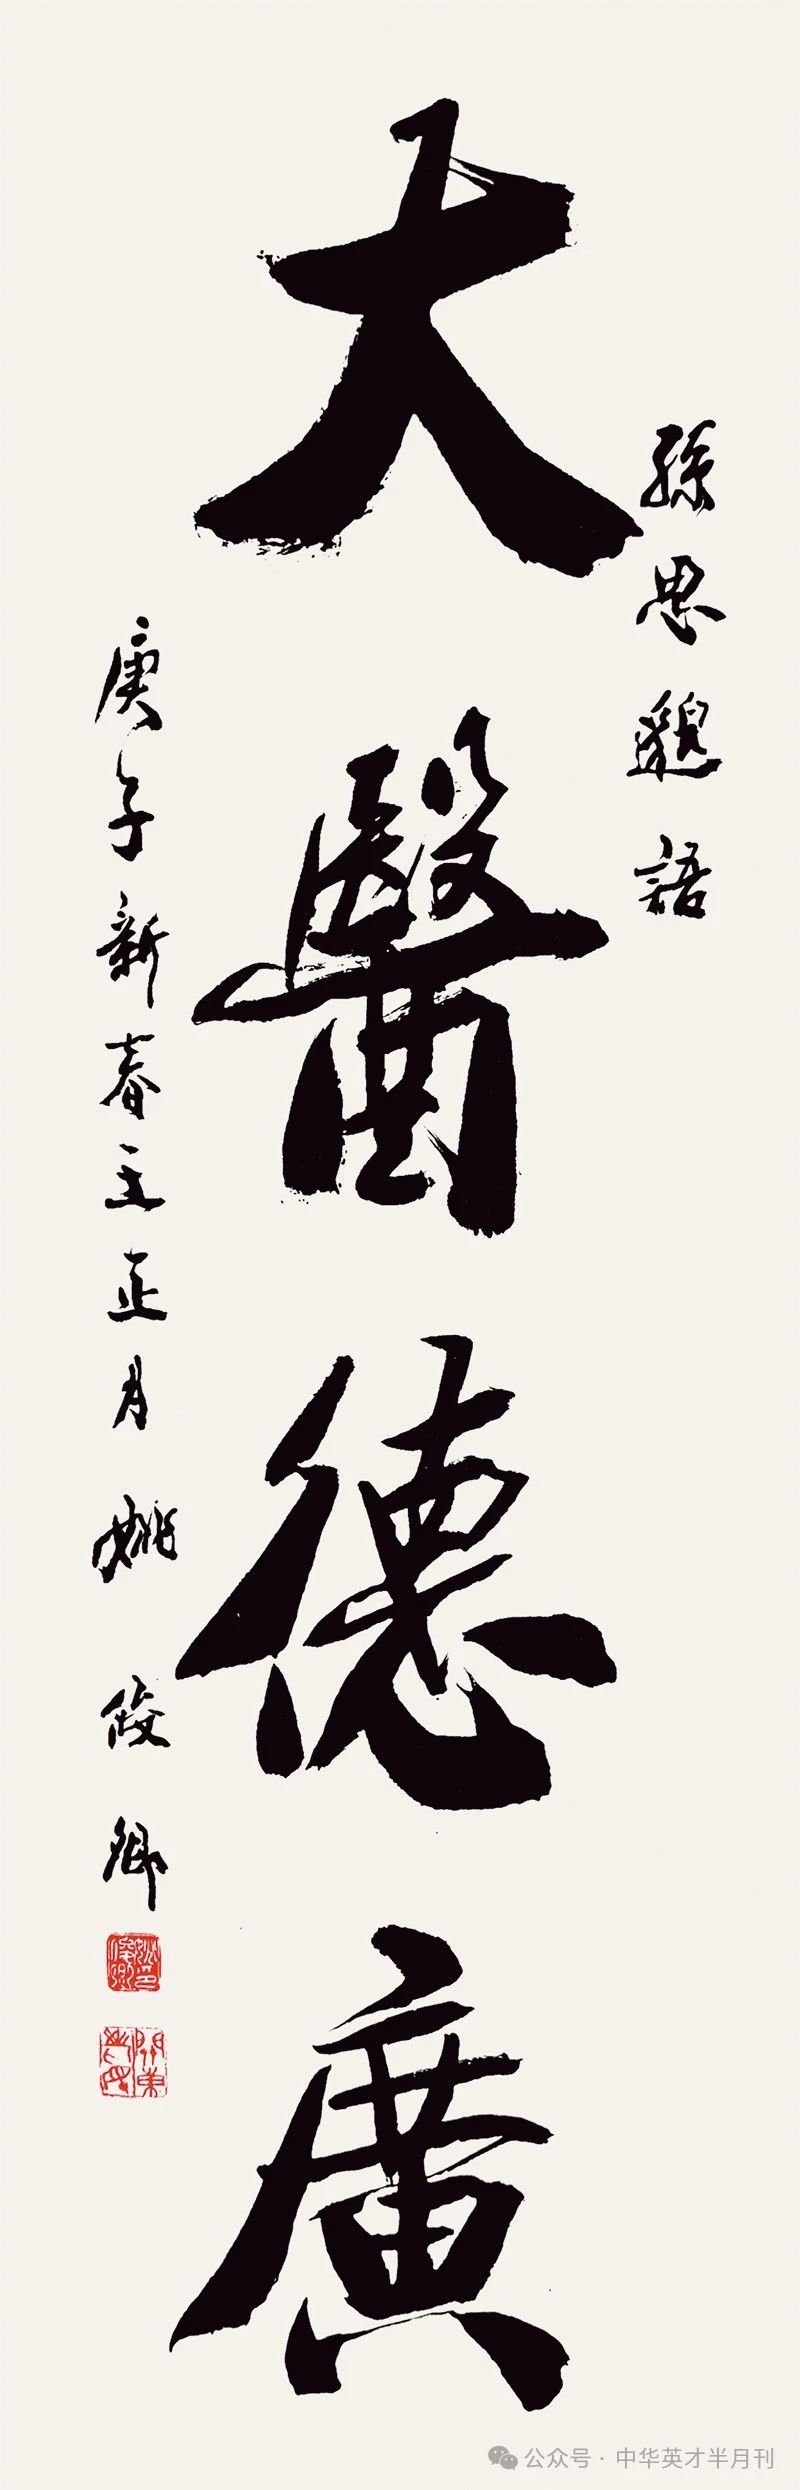 孫思邈語
大醫德廣
庚子新春王正月 姚俊卿
公众号·中华英才半月刊